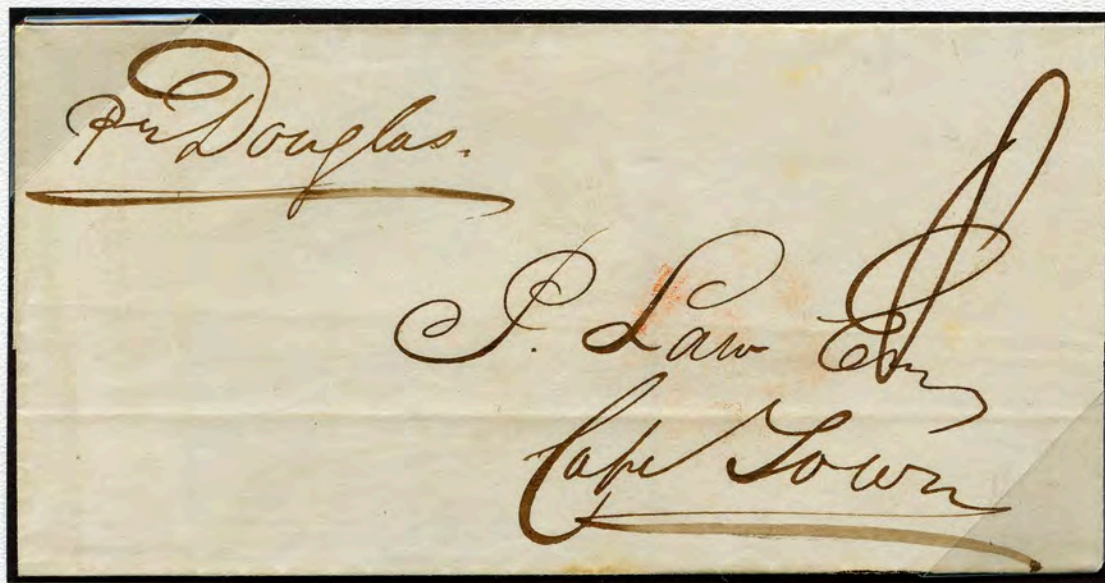 Pr Douglas.
P. Law Esq
Cape Town